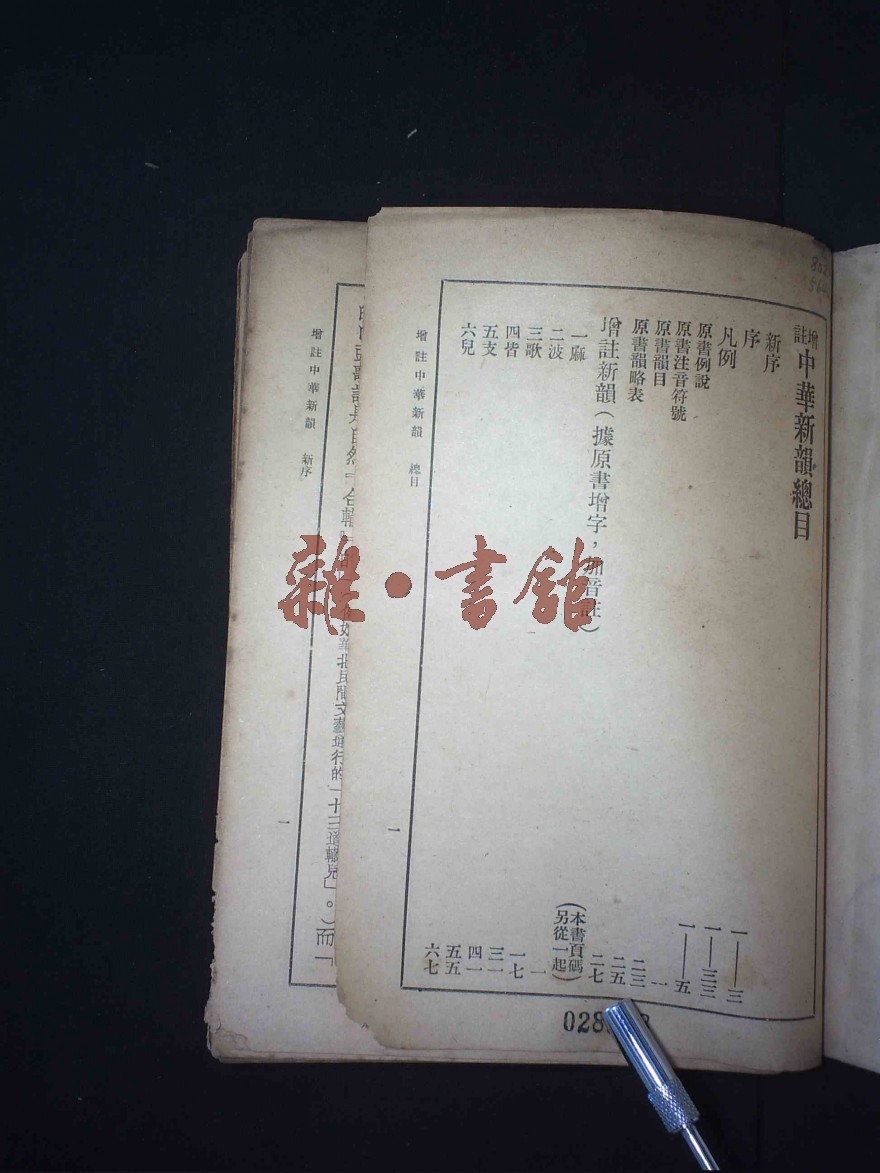 增註中華新韻總目
新序 一——三
序 一——三三
凡例 一——五
原書例說 一
原書注音符號 二三
原書韻目 二五
原書韻略表 二七
增註新韻（據原書增字，加音註）（本書頁碼另從一起）
一麻 一
二波 一七
三歌 三一
四皆 四一
五支 五五
六兒 六七
增註中華新韻 總目 一
北民間文藝通行的「十三道轍兒」。）而
增註中華新韻 新序 一
雜·書館
028